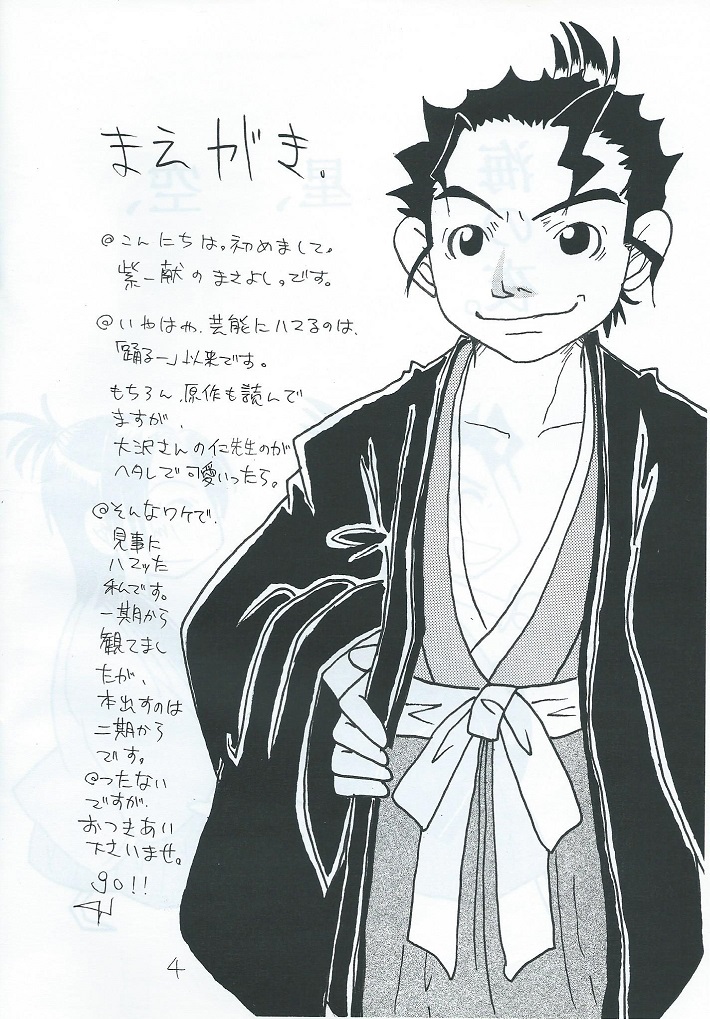 まえがき。
@こんにちは。初めまして。
紫一献のまさよし。です。
@いやはや、芸能にハマるのは、
「踊るー」以来です。
もちろん、原作も読んで
ますが、
大沢さんの仁先生のが
ヘタレで可愛いったら。
@そんなワケで、
見事に
ハマッた
私です。
一期から
観てまし
たが、
本出すのは
二期から
です。
@つたない
ですが、
おつきあい
下さいませ。
go!!
4